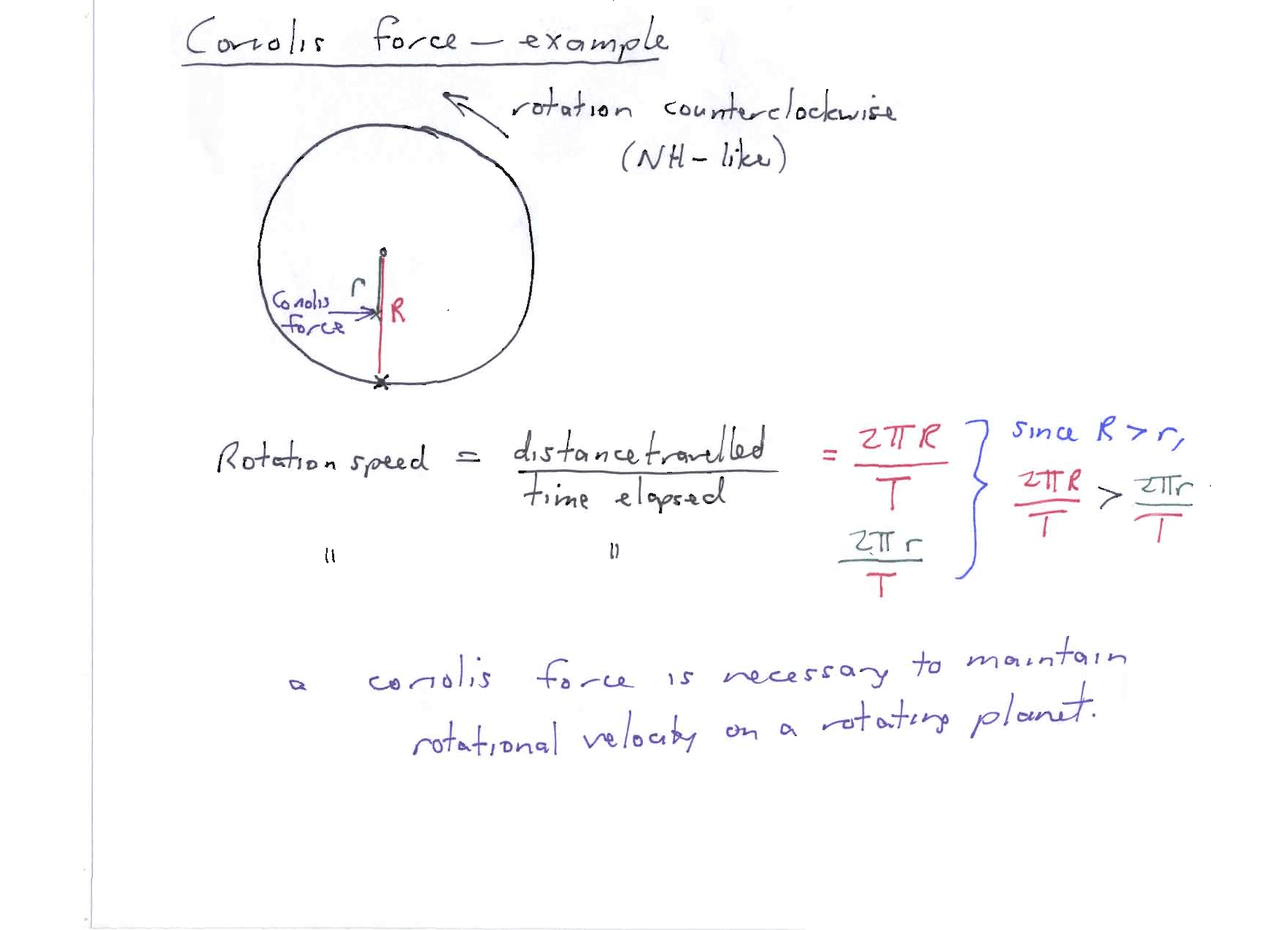 Coriolis force — example
rotation counterclockwise
(NH-like)
r
Coriolis
force
R
Rotation speed = distance travelled / time elapsed = 2πR / T } since R > r,
2πR / T > 2πr / T
" " 2πr / T
a coriolis force is necessary to maintain
rotational velocity on a rotating planet.